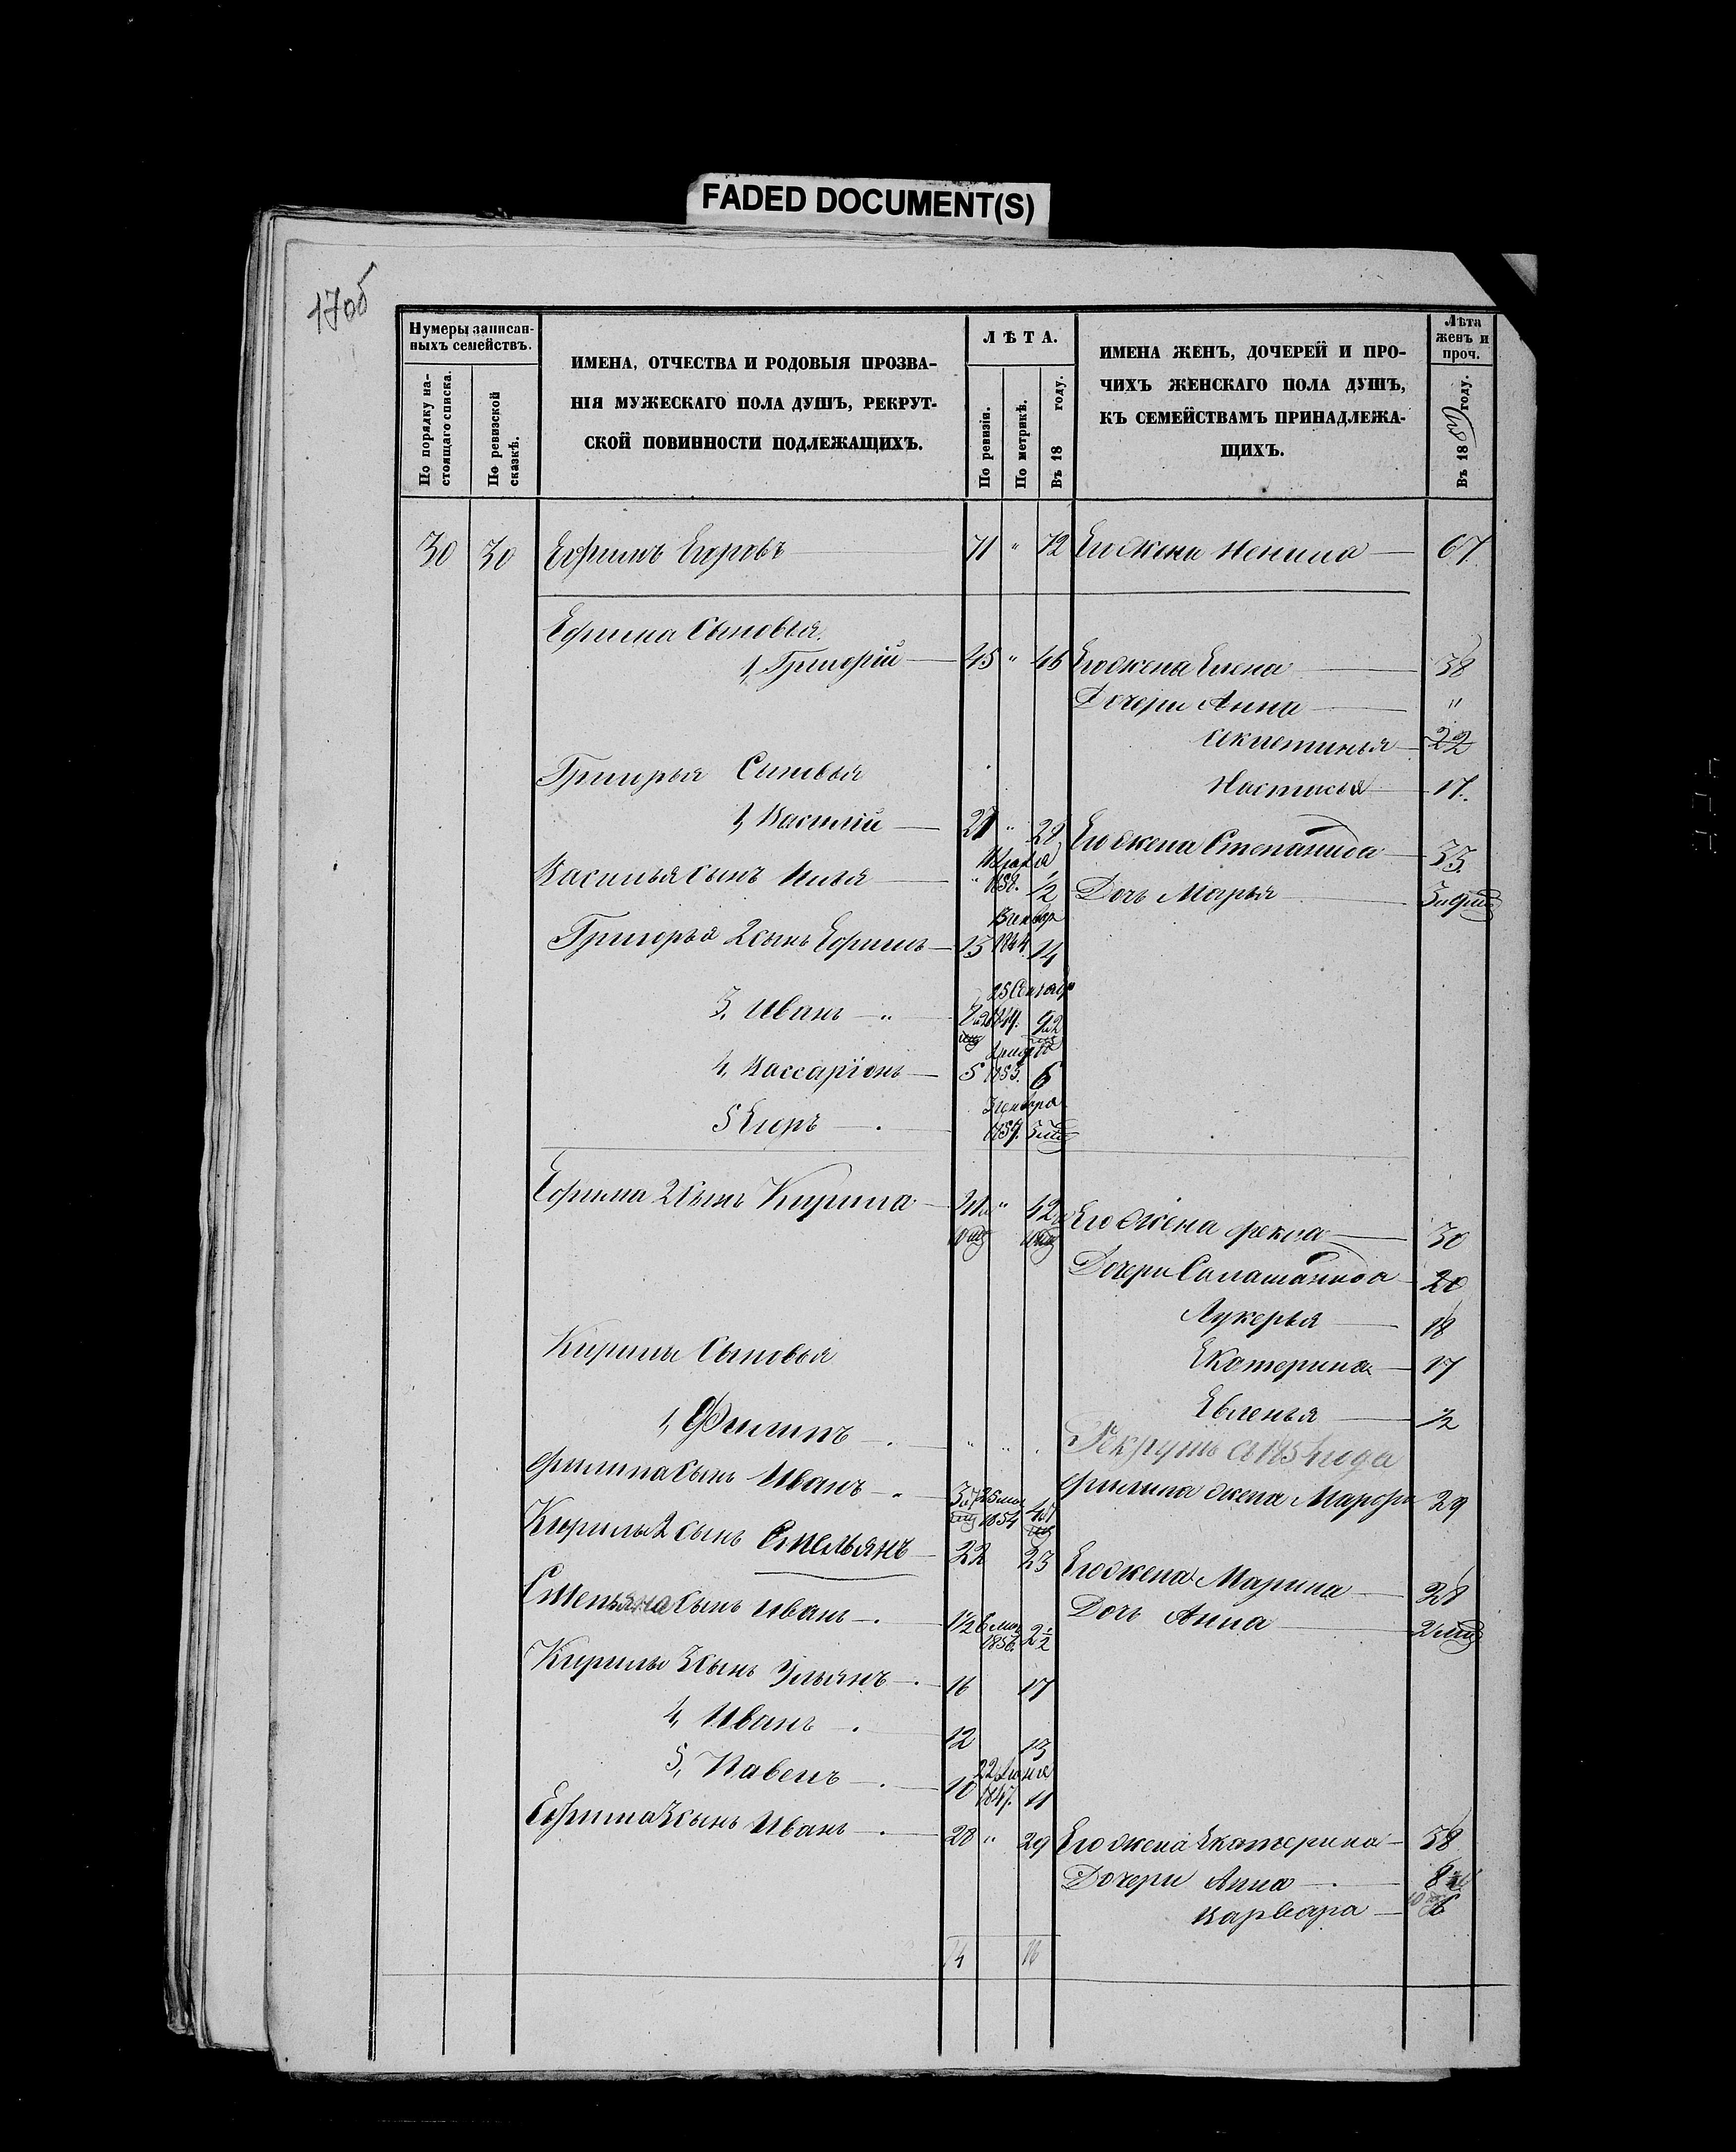 FADED DOCUMENT(S)
17об
Нумеры записан-
ныхъ семействъ.
По порядку на-
стоящаго списка.
По ревизской
сказкѣ.
ИМЕНА, ОТЧЕСТВА И РОДОВЫЯ ПРОЗВА-
НІЯ МУЖЕСКАГО ПОЛА ДУШЪ, РЕКРУТ-
СКОЙ ПОВИННОСТИ ПОДЛЕЖАЩИХЪ.
ЛѢТА.
По ревизіи.
По метрикѣ.
Въ 18 году.
ИМЕНА ЖЕНЪ, ДОЧЕРЕЙ И ПРО-
ЧИХЪ ЖЕНСКАГО ПОЛА ДУШЪ,
КЪ СЕМЕЙСТВАМЪ ПРИНАДЛЕЖА-
ЩИХЪ.
Лѣта
женъ и
проч.
Въ 18 году.
30 30 Ефимъ Егоровъ 71 " 72 Его жена Ненила 67
Ефима Сыновья
1, Григорій 45 " 46 Его жена Елена 38
Дочери Анна "
22
Григорья Сыновья Настасья 17
1, Василій 28 Его жена Степанида 33
Василья сынъ Илья 1/2 Дочь Марья
Григорья 2 сынъ Ефимъ 13 1844 14
3, Иванъ "
4, Вассаріонъ 5 1853. 6
5 Егоръ 1857.
Ефима 2 сынъ Кирила 41 " 42 Его жена Фекла 30
Дочери 20
Лукерья 18
Кирилы Сыновья Екатерина 17
Евленья
1, Филипъ " " Рекрутъ съ 1854 года
Филипа сынъ Иванъ 1854 Филипа жена Марфа 29
Кирилы 2 сынъ Емельянъ 22 23 Его жена Марина 28
Емельяна сынъ Иванъ 1 1/2 1856. 2 1/2 Дочь Анна
Кирилы 3 сынъ Ульянъ 16 17
4, Иванъ 12 13
5, Павелъ 10 1847. 11
Ефима 3 сынъ Иванъ 28 " 29 Его жена Екатерина 38
Дочери Анна 8
Варвара
14 16